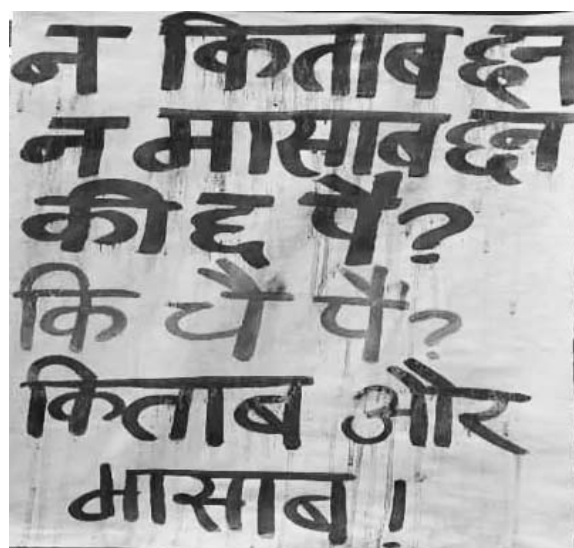 न किताब छन
न मासाब छन
की छ पै?
कि चै पै?
किताब और
मासाब!